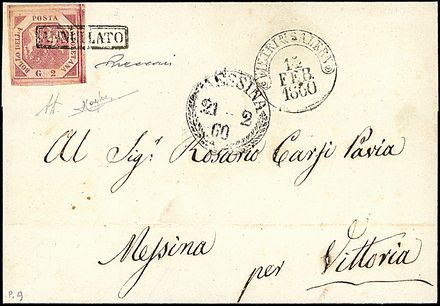 POSTA
BOLLO DELLA
G. 2
ANNULLATO
12
FEB
1860
MESSINA
21 - 2
60
Al Sigʳ Rosario Carsi Pavia
Messina
per Vittoria
P. 9